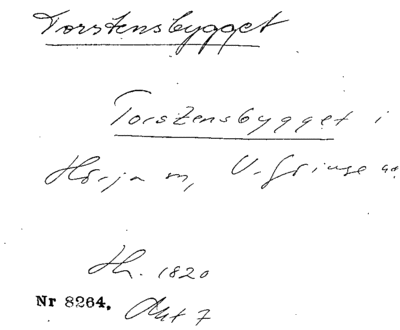 Torstensbygget
Torstensbygget i
Hörja m, V. Göinge hd
Hh. 1820
Nr 8264. Akt 7